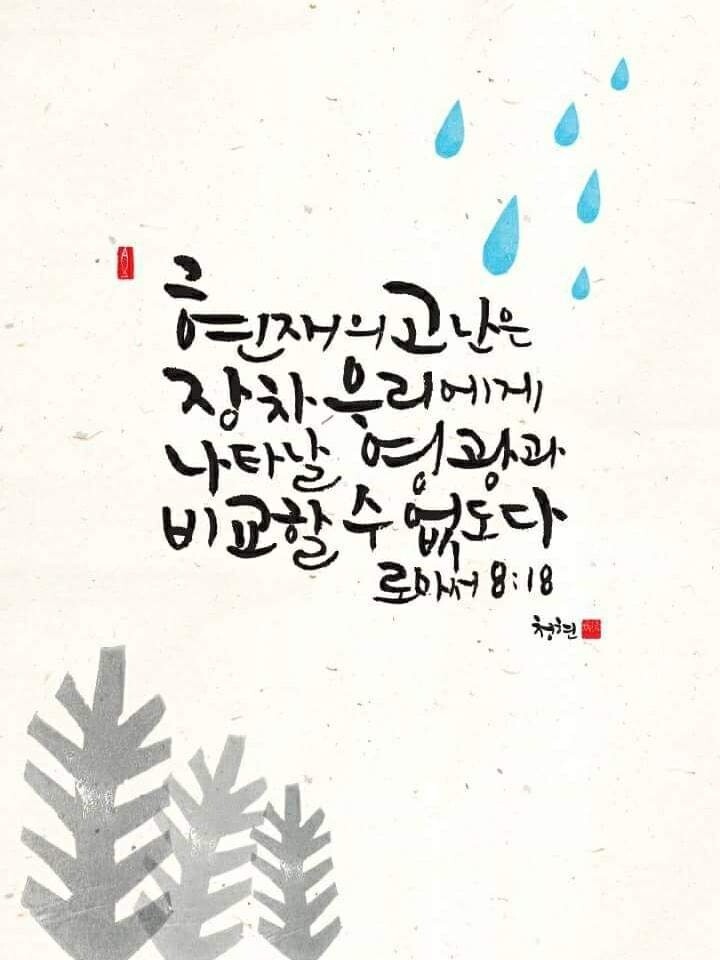 현재의 고난은
장차 우리에게
나타날 영광과
비교할 수 없도다
로마서 8:18
청현